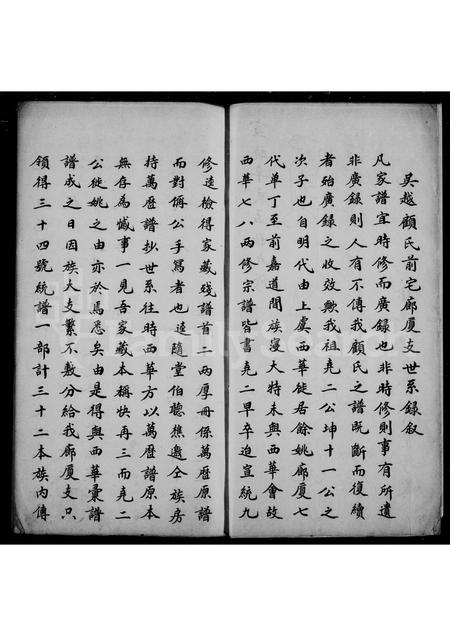 吳越顧氏前宅廊廈支世系錄叙
凡家譜宜時修而廣錄也非時修則事有所遺
非廣錄則人有不傳我顧氏之譜既斷而復續
者殆廣錄之收效歟我祖堯二公坤十一公之
次子也自明代由上虞西華徙居餘姚廊廈七
代單丁至前嘉道間族寖大特未與西華會故
西華七八兩修宗譜皆書堯二早卒迨宣統九
修迭檢得家藏殘譜首二兩厚冊係萬厯原譜
而對俌公手寫者也迳隨堂伯聽樵邀仝族房
持萬厯譜抄世系往時西華方以萬厯譜原本
無存為憾事一見吾家藏本稱快再三而堯二
公徙姚之由亦於焉悉矣由是得與西華彙譜
譜成之日因族大支繁不敷分給我廊廈支只
領得三十四號統譜一部計三十二本族內傳